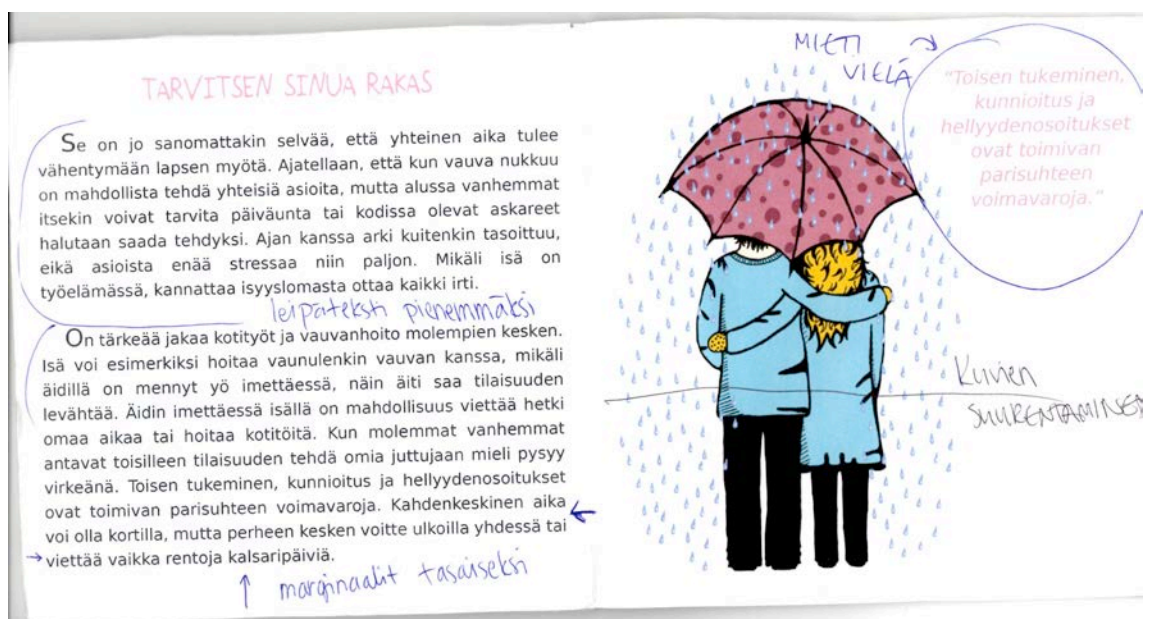 TARVITSEN SINUA RAKAS
Se on jo sanomattakin selvää, että yhteinen aika tulee
vähentymään lapsen myötä. Ajatellaan, että kun vauva nukkuu
on mahdollista tehdä yhteisiä asioita, mutta alussa vanhemmat
itsekin voivat tarvita päiväunta tai kodissa olevat askareet
halutaan saada tehdyksi. Ajan kanssa arki kuitenkin tasoittuu,
eikä asioista enää stressaa niin paljon. Mikäli isä on
työelämässä, kannattaa isyyslomasta ottaa kaikki irti.
leipäteksti pienemmäksi
On tärkeää jakaa kotityöt ja vauvanhoito molempien kesken.
Isä voi esimerkiksi hoitaa vaunulenkin vauvan kanssa, mikäli
äidillä on mennyt yö imettäessä, näin äiti saa tilaisuuden
levähtää. Äidin imettäessä isällä on mahdollisuus viettää hetki
omaa aikaa tai hoitaa kotitöitä. Kun molemmat vanhemmat
antavat toisilleen tilaisuuden tehdä omia juttujaan mieli pysyy
virkeänä. Toisen tukeminen, kunnioitus ja hellyydenosoitukset
ovat toimivan parisuhteen voimavaroja. Kahdenkeskinen aika
voi olla kortilla, mutta perheen kesken voitte ulkoilla yhdessä tai
viettää vaikka rentoja kalsaripäiviä.
marginaalit tasaiseksi
MIETI
VIELÄ
"Toisen tukeminen,
kunnioitus ja
hellyydenosoitukset
ovat toimivan
parisuhteen
voimavaroja."
Kuvien
SUURENTAMINEN